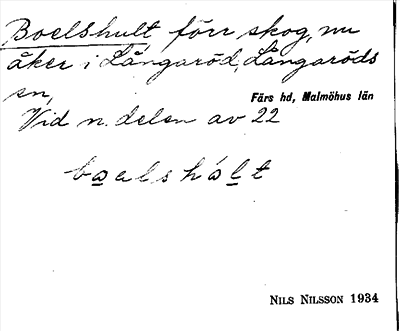 Boelshult förr skog, nu
åker i Långaröd, Långaröds
sn,
Färs hd, Malmöhus län
Vid n. delen av 22
boelshólt
NILS NILSSON 1934